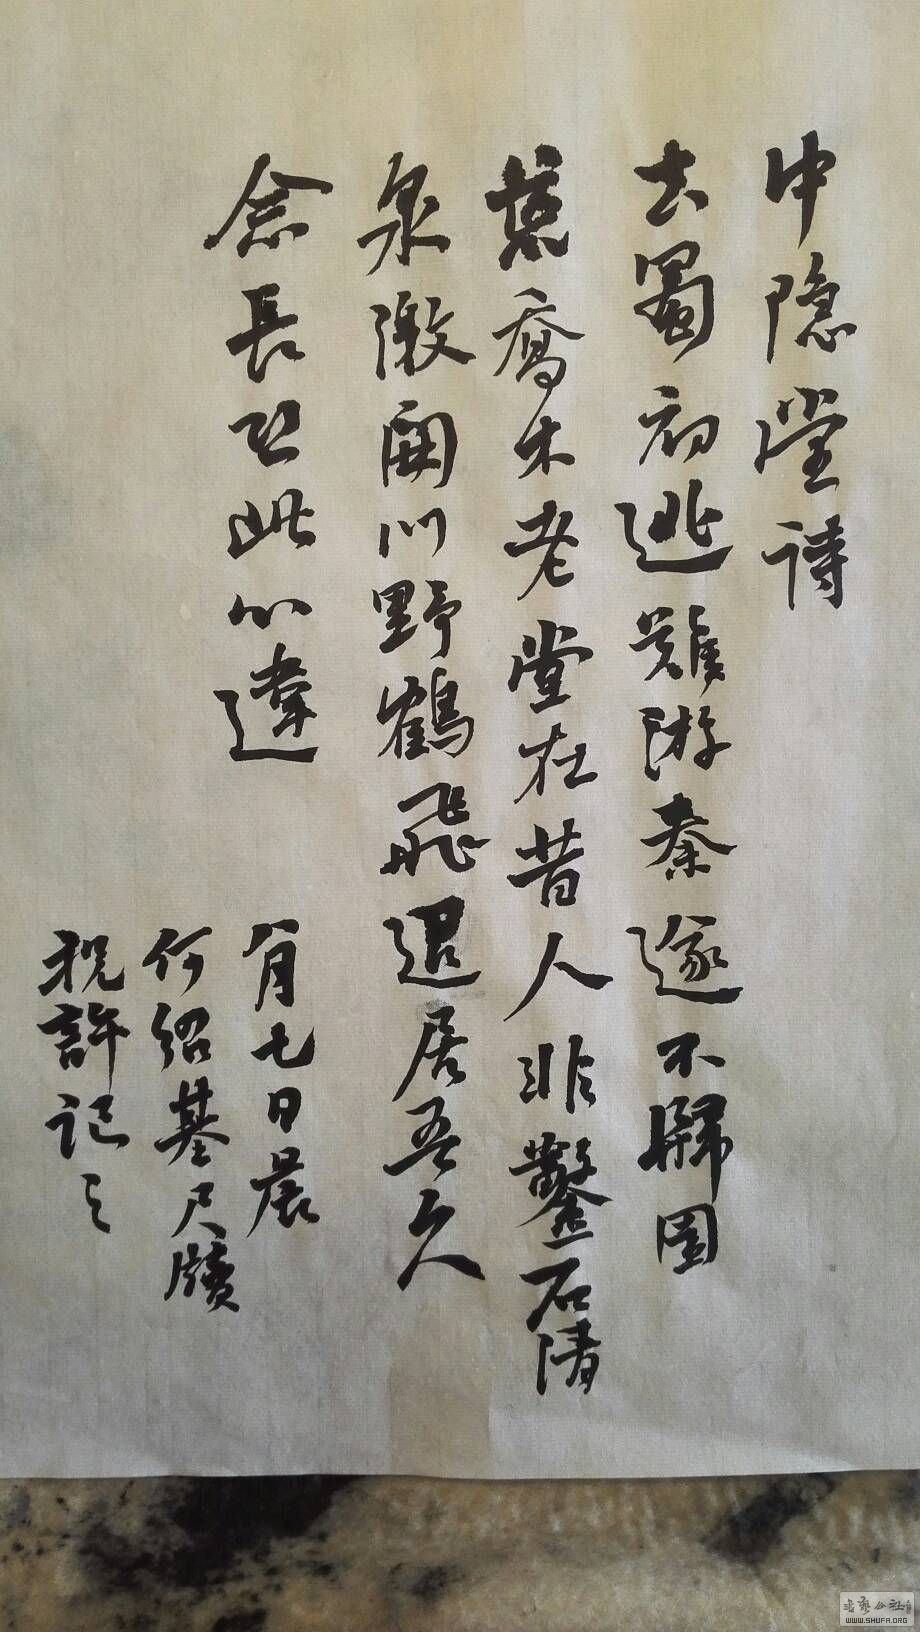 中隱堂詩
去蜀初逃難游秦遂不歸園
荒喬木老堂在昔人非鑿石清
泉激開門野鶴飛退居吾久
念長恐此心違
八月七日晨
何紹基尺牘
祝許記之
書藝公社
WWW.SHUFA.ORG